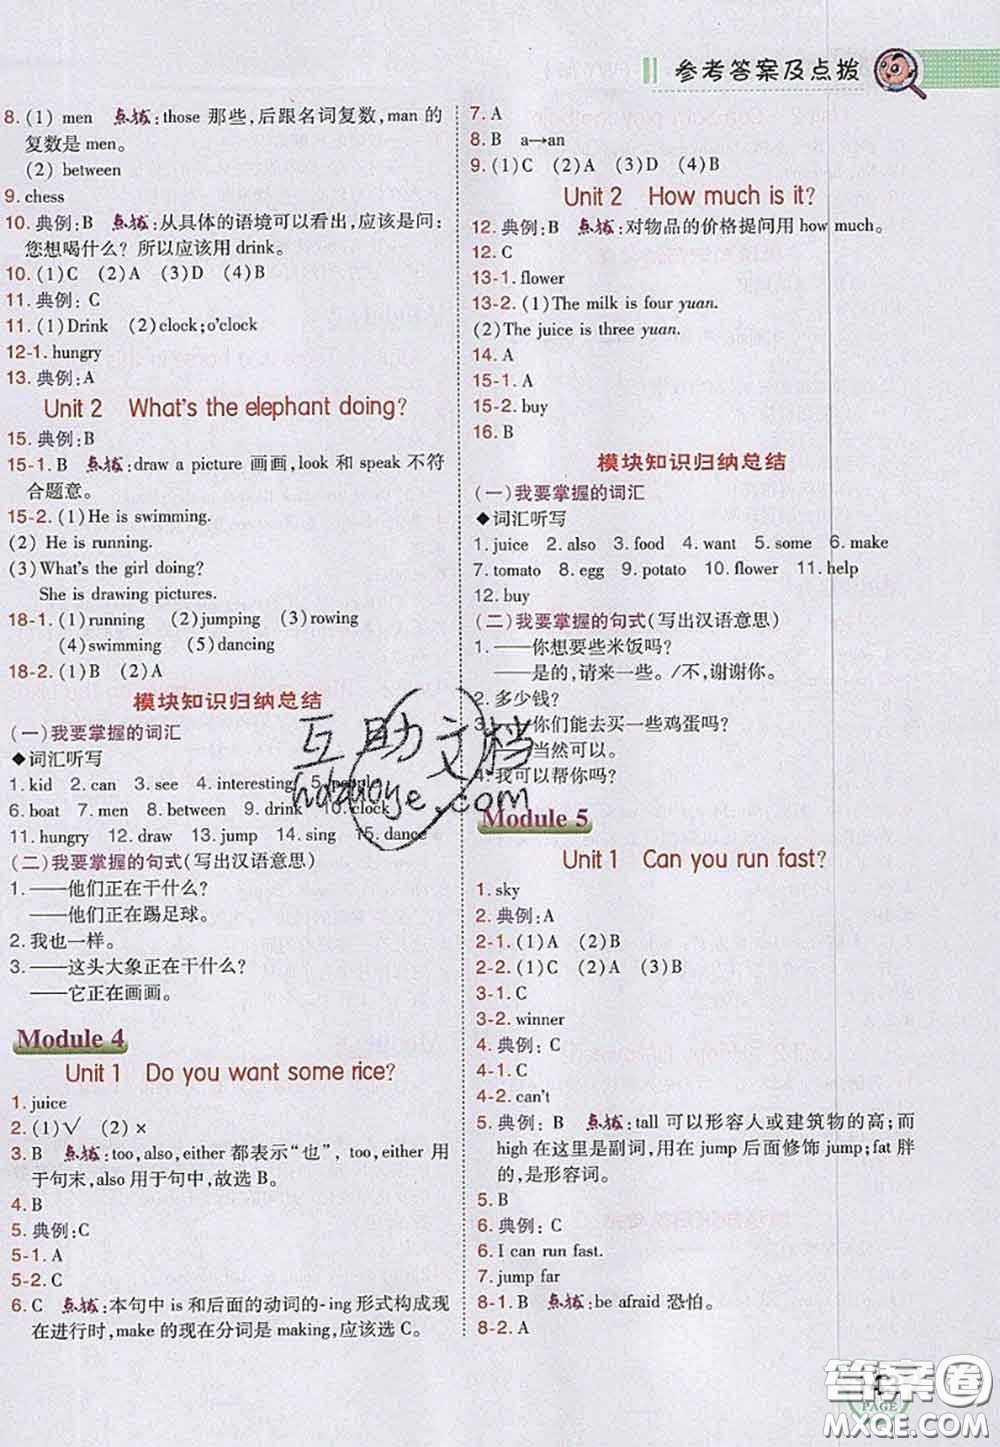 参考答案及点拨
8. (1) men 点拨:those 那些,后跟名词复数,man 的
复数是 men。
(2) between
9. chess
10. 典例:B 点拨:从具体的语境可以看出,应该是问:
您想喝什么? 所以应该用 drink。
10. (1)C (2)A (3)C (4)B
11. 典例: C
11. (1)Drink (2)clock;o'clock
12-1. hungry
13. 典例:A
Unit 2 What's the elephant doing?
15. 典例:B
15-1. B 点拨:draw a picture 画画,look 和 speak 不符
合题意。
15-2. (1)He is swimming.
(2) He is running.
(3)What's the girl doing?
She is drawing pictures.
18-1. (1)running (2)jumping (3)rowing
(4)swimming (5)dancing
18-2. (1)B (2)A
模块知识归纳总结
(一)我要掌握的词汇
◆词汇听写
1. kid 2. can 3. see 4. interesting 5. people
6. boat 7. men 8. between 9. drink 10. clock
11. hungry 12. draw 13. jump 14. sing 15. dance
(二)我要掌握的句式(写出汉语意思)
1. ——他们正在干什么?
——他们正在踢足球。
2. 我也一样。
3. ——这头大象正在干什么?
——它正在画画。
Module 4
Unit 1 Do you want some rice?
1. juice
2. (1)√ (2)×
3. B 点拨:too,also,either 都表示“也”,too,either 用
于句末,also 用于句中,故选 B。
4. B
5. 典例:C
5-1. A
5-2. C
6. C 点拨:本句中 is 和后面的动词的-ing 形式构成现
在进行时,make 的现在分词是 making,应该选 C。
7. A
8. B a→an
9. (1)C (2)A (3)D (4)B
Unit 2 How much is it?
12. 典例:B 点拨:对物品的价格提问用 how much。
12. C
13-1. flower
13-2. (1)The milk is four yuan.
(2)The juice is three yuan.
14. A
15-1. A
15-2. buy
16. B
模块知识归纳总结
(一)我要掌握的词汇
◆词汇听写
1. juice 2. also 3. food 4. want 5. some 6. make
7. tomato 8. egg 9. potato 10. flower 11. help
12. buy
(二)我要掌握的句式(写出汉语意思)
1. ——你想要些米饭吗?
——是的,请来一些。/不,谢谢你。
2. 多少钱?
3. ——你们能去买一些鸡蛋吗?
——当然可以。
4. 我可以帮你吗?
Module 5
Unit 1 Can you run fast?
1. sky
2. 典例:A
2-1. (1)A (2)B
2-2. (1)C (2)A (3)B
3-1. C
3-2. winner
4. 典例:C
4-1. C
4-2. can't
5. 典例: B 点拨:tall 可以形容人或建筑物的高;而
high 在这里是副词,用在 jump 后面修饰 jump;fat 胖
的,是形容词。
5. B
6. 典例: C
6. I can run fast.
7. jump far
8-1. B 点拨:be afraid 恐怕。
8-2. A
PAGE
互助文档
hdzuoye.com
答案圈
MXQE.COM